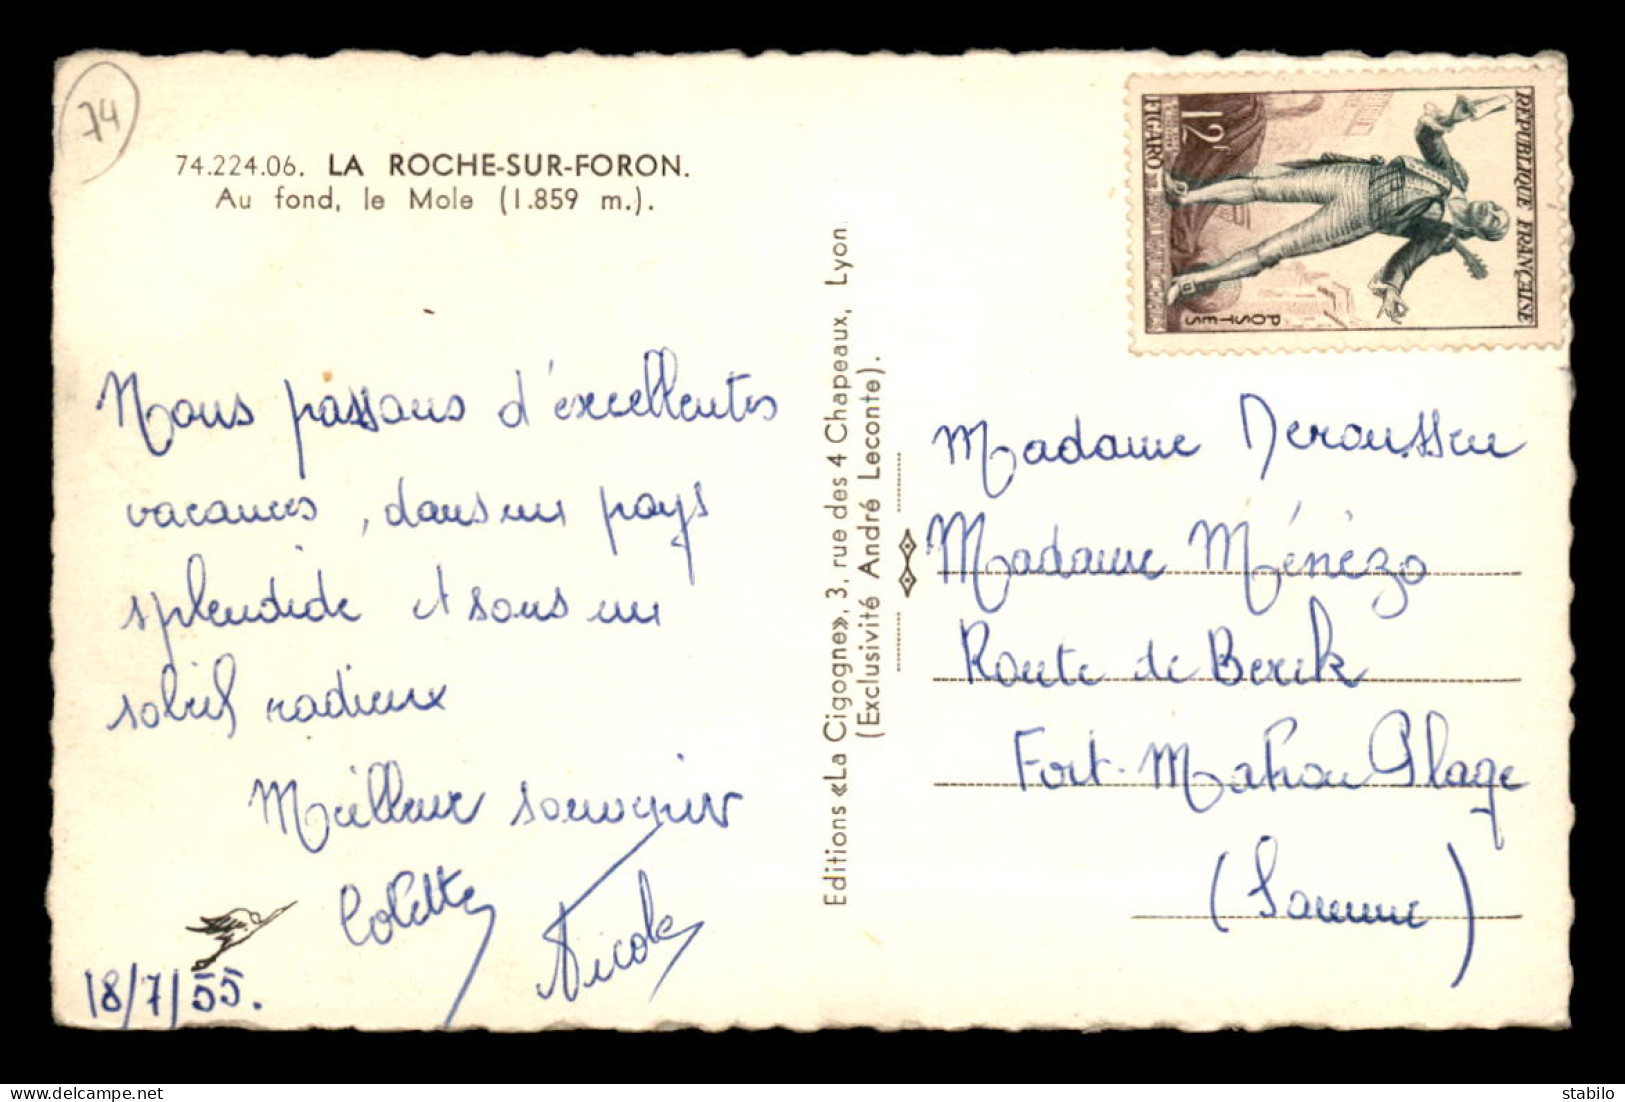 74
74.224.06. LA ROCHE-SUR-FORON.
Au fond, le Mole (1.859 m.).
Nous passons d'excellentes
vacances, dans un pays
splendide et sous un
soleil radieux
Meilleur souvenir
Colette
Nicole
18/7/55.
Editions «La Cigogne», 3, rue des 4 Chapeaux, Lyon
(Exclusivité André Leconte).
REPUBLIQUE FRANÇAISE
POSTES
12f
FIGARO
Madame Deroussen
Madame Ménézo
Route de Berck
Fort-Mahon Plage
(Somme)
stabilo